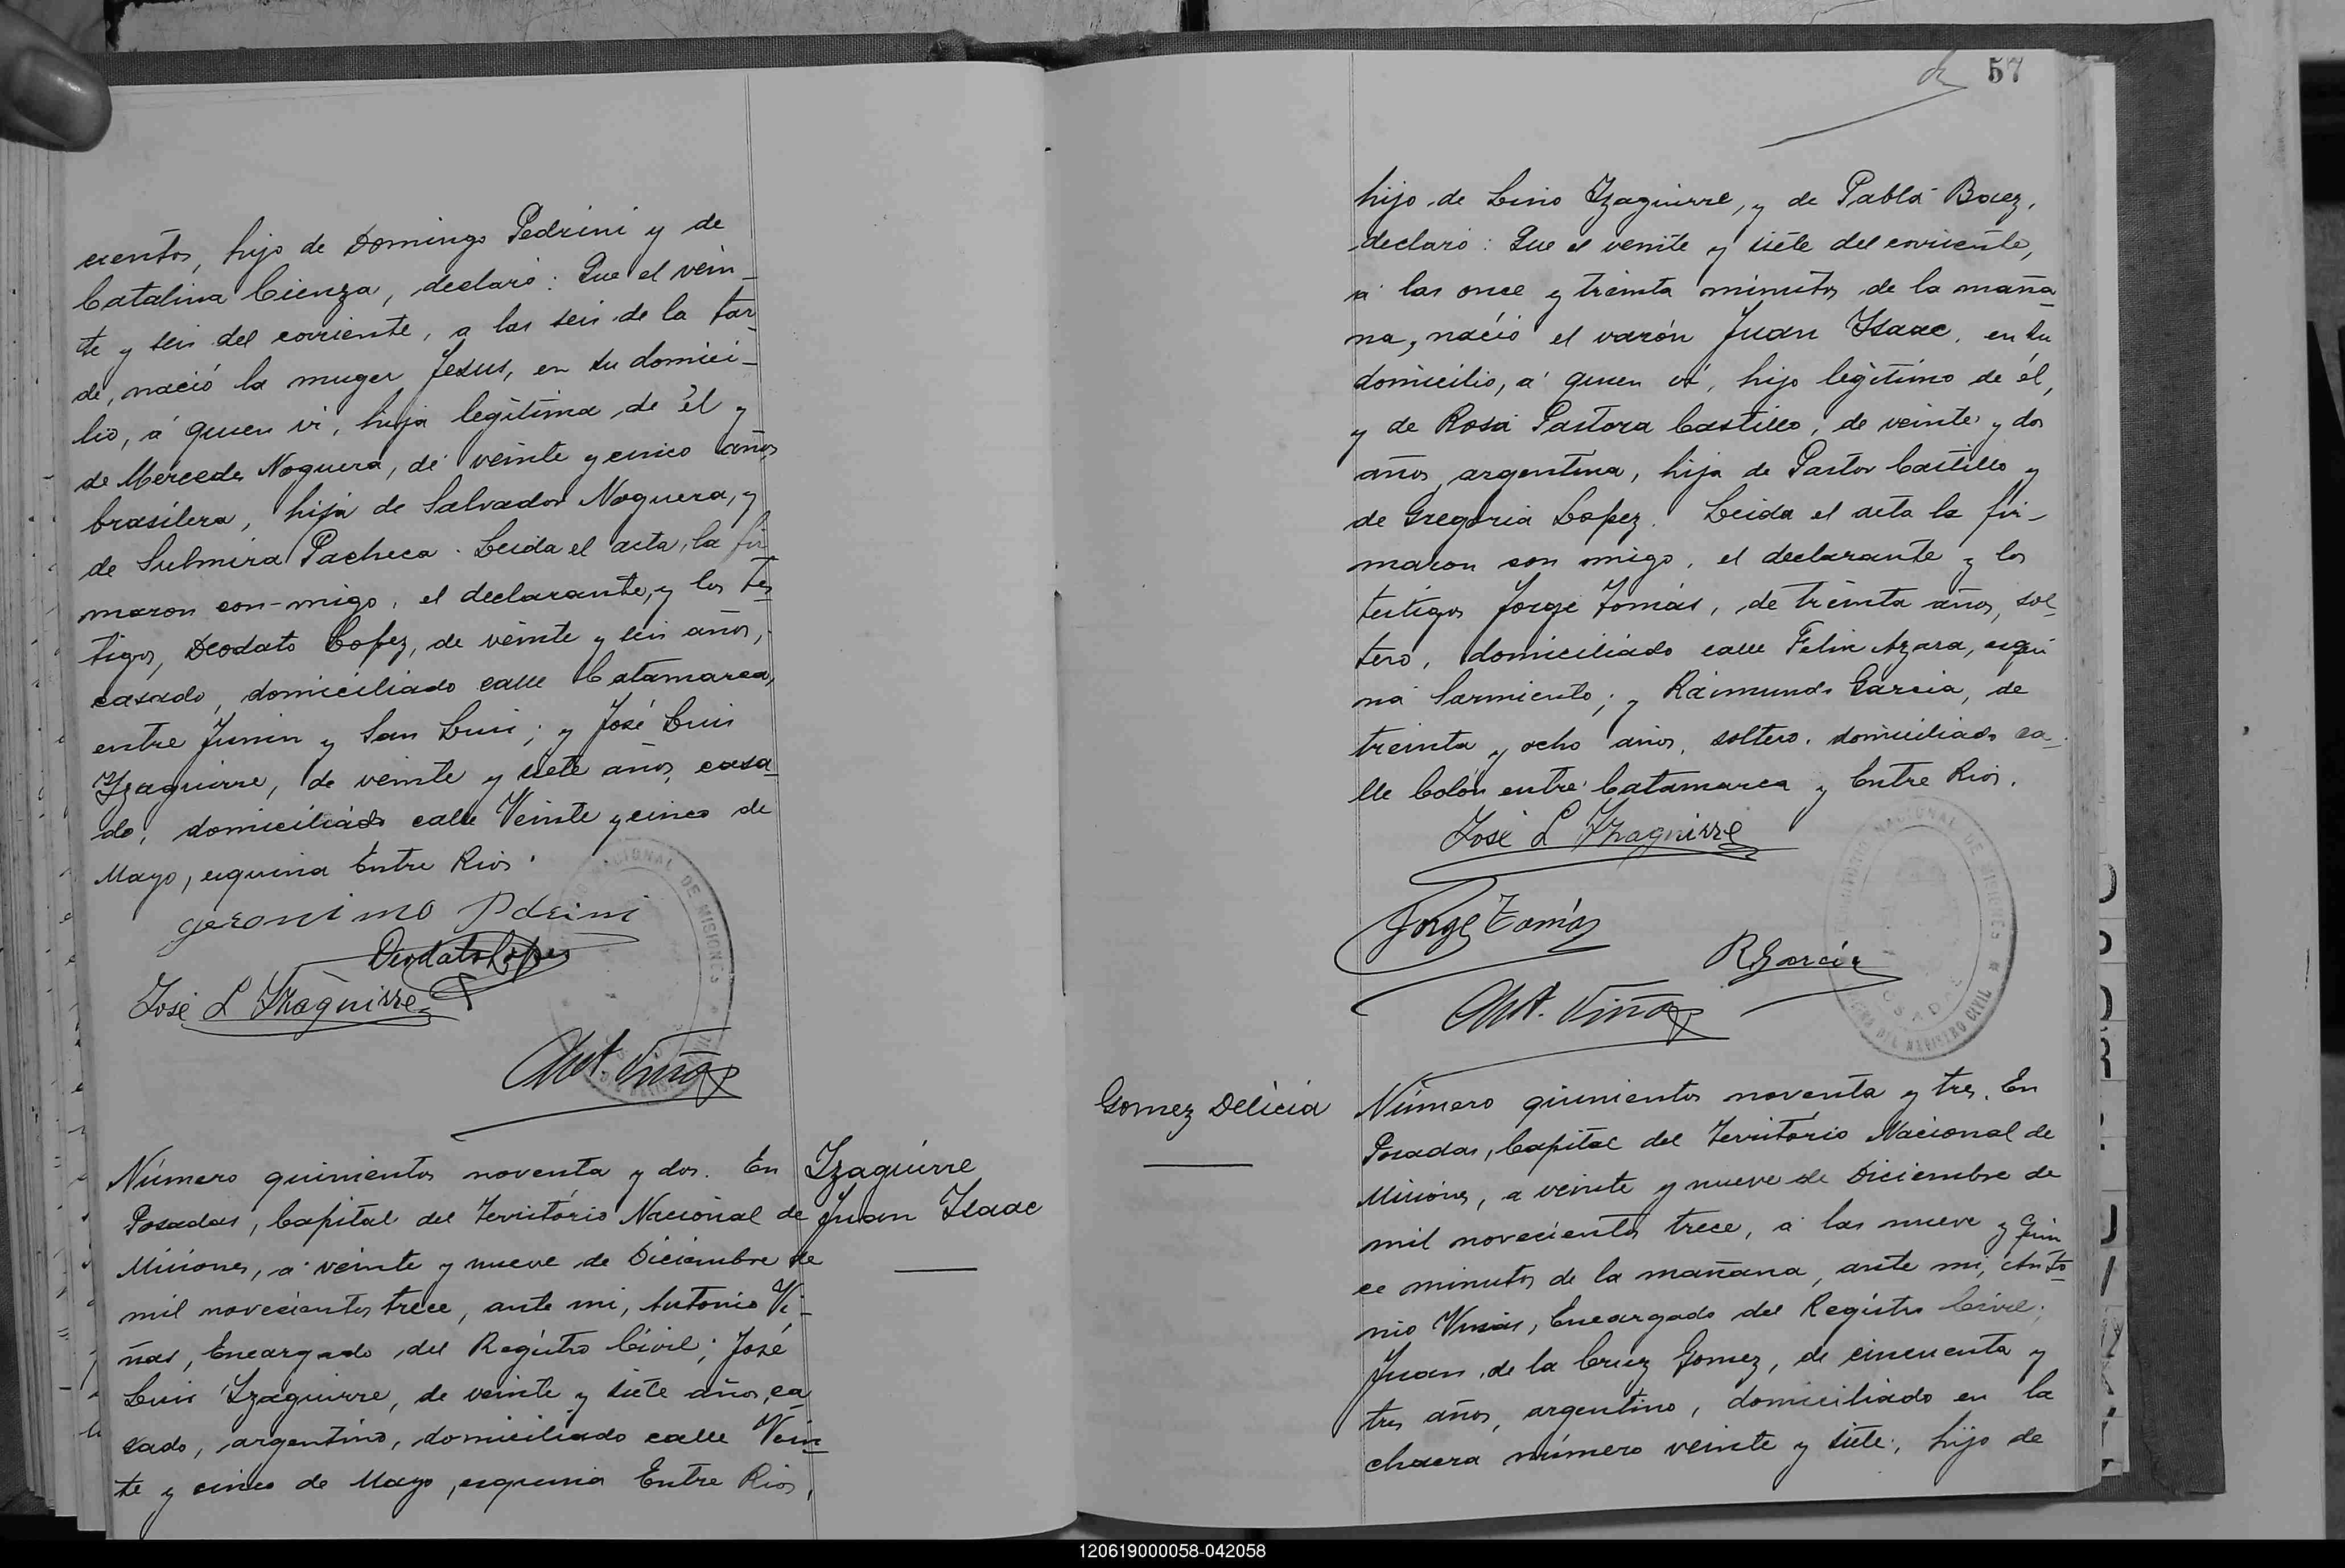 cientos, hijo de Domingo Pedrini y de
Catalina Cienza, declaró: Que el vein-
te y seis del corriente, a las seis de la tar-
de, nació la muger Jesus, en su domici-
lio, á quien vi, hija legitima de él y
de Mercedes Noguera, de veinte y cinco años
brasilera, hija de Salvador Noguera, y
de Sulmira Pacheca. Leida el acta, la fir
maron con-migo, el declarante, y los tes
tigos, Deodato Lopez, de veinte y seis años,
casado, domiciliado calle Catamarca,
entre Junin y San Luis; y José Luis
Yzaguirre, de veinte y siete años, casa-
do, domiciliado calle Veinte y cinco de
Mayo, esquina Entre Rios.
geronimo Pdrini
Deodato Lopez
José L Yzaguirre
Ant. Viñas
Número quinientos noventa y dos. En
Posadas, Capital del Território Nacional de
Misiones, a veinte y nueve de Diciembre de
mil novecientos trece, ante mi, Antonio Vi-
ñas, Encargado del Registro Civil; José
Luis Yzaguirre, de veinte y siete años, ca
sado, argentino, domiciliado calle Vein
te y cinco de Mayo, esquina Entre Rios,
Yzaguirre
Juan Ysaac
57
hijo de Lino Yzaguirre, y de Pabla Baez,
declaró: Que el veinte y siete del corriente,
a las once y treinta minutos de la maña
na, nació el varón Juan Ysaac, en su
domicilio, a quien vi, hijo legitimo de él,
y de Rosa Pastora Castillo, de veinte y dos
años, argentina, hija de Pastor Castillo y
de Gregoria Lopez. Leida el acta la fir-
maron con migo, el declarante y los
testigos Jorge Tomás, de treinta años, sol
tero, domiciliado calle Felix Azara, esqui
na Sarmiento; y Raimundo Garcia, de
treinta y ocho años, soltero, domiciliado ca-
lle Colón entre Catamarca y Entre Rios.
José L Yzaguirre
Jorge Tomás
R Garcia
Ant. Viñas
Gomez Delicia
Número quinientos noventa y tres. En
Posadas, Capital del Territorio Nacional de
Misiones, a veinte y nueve de Diciembre de
mil novecientos trece, a las nueve y quin
ce minutos de la mañana, ante mi, Anto-
nio Viñas, Encargado del Registro Civil;
Juan de la Cruz Gomez, de cincuenta y
tres años, argentino, domiciliado en la
chacra número veinte y siete, hijo de
120619000058-042058